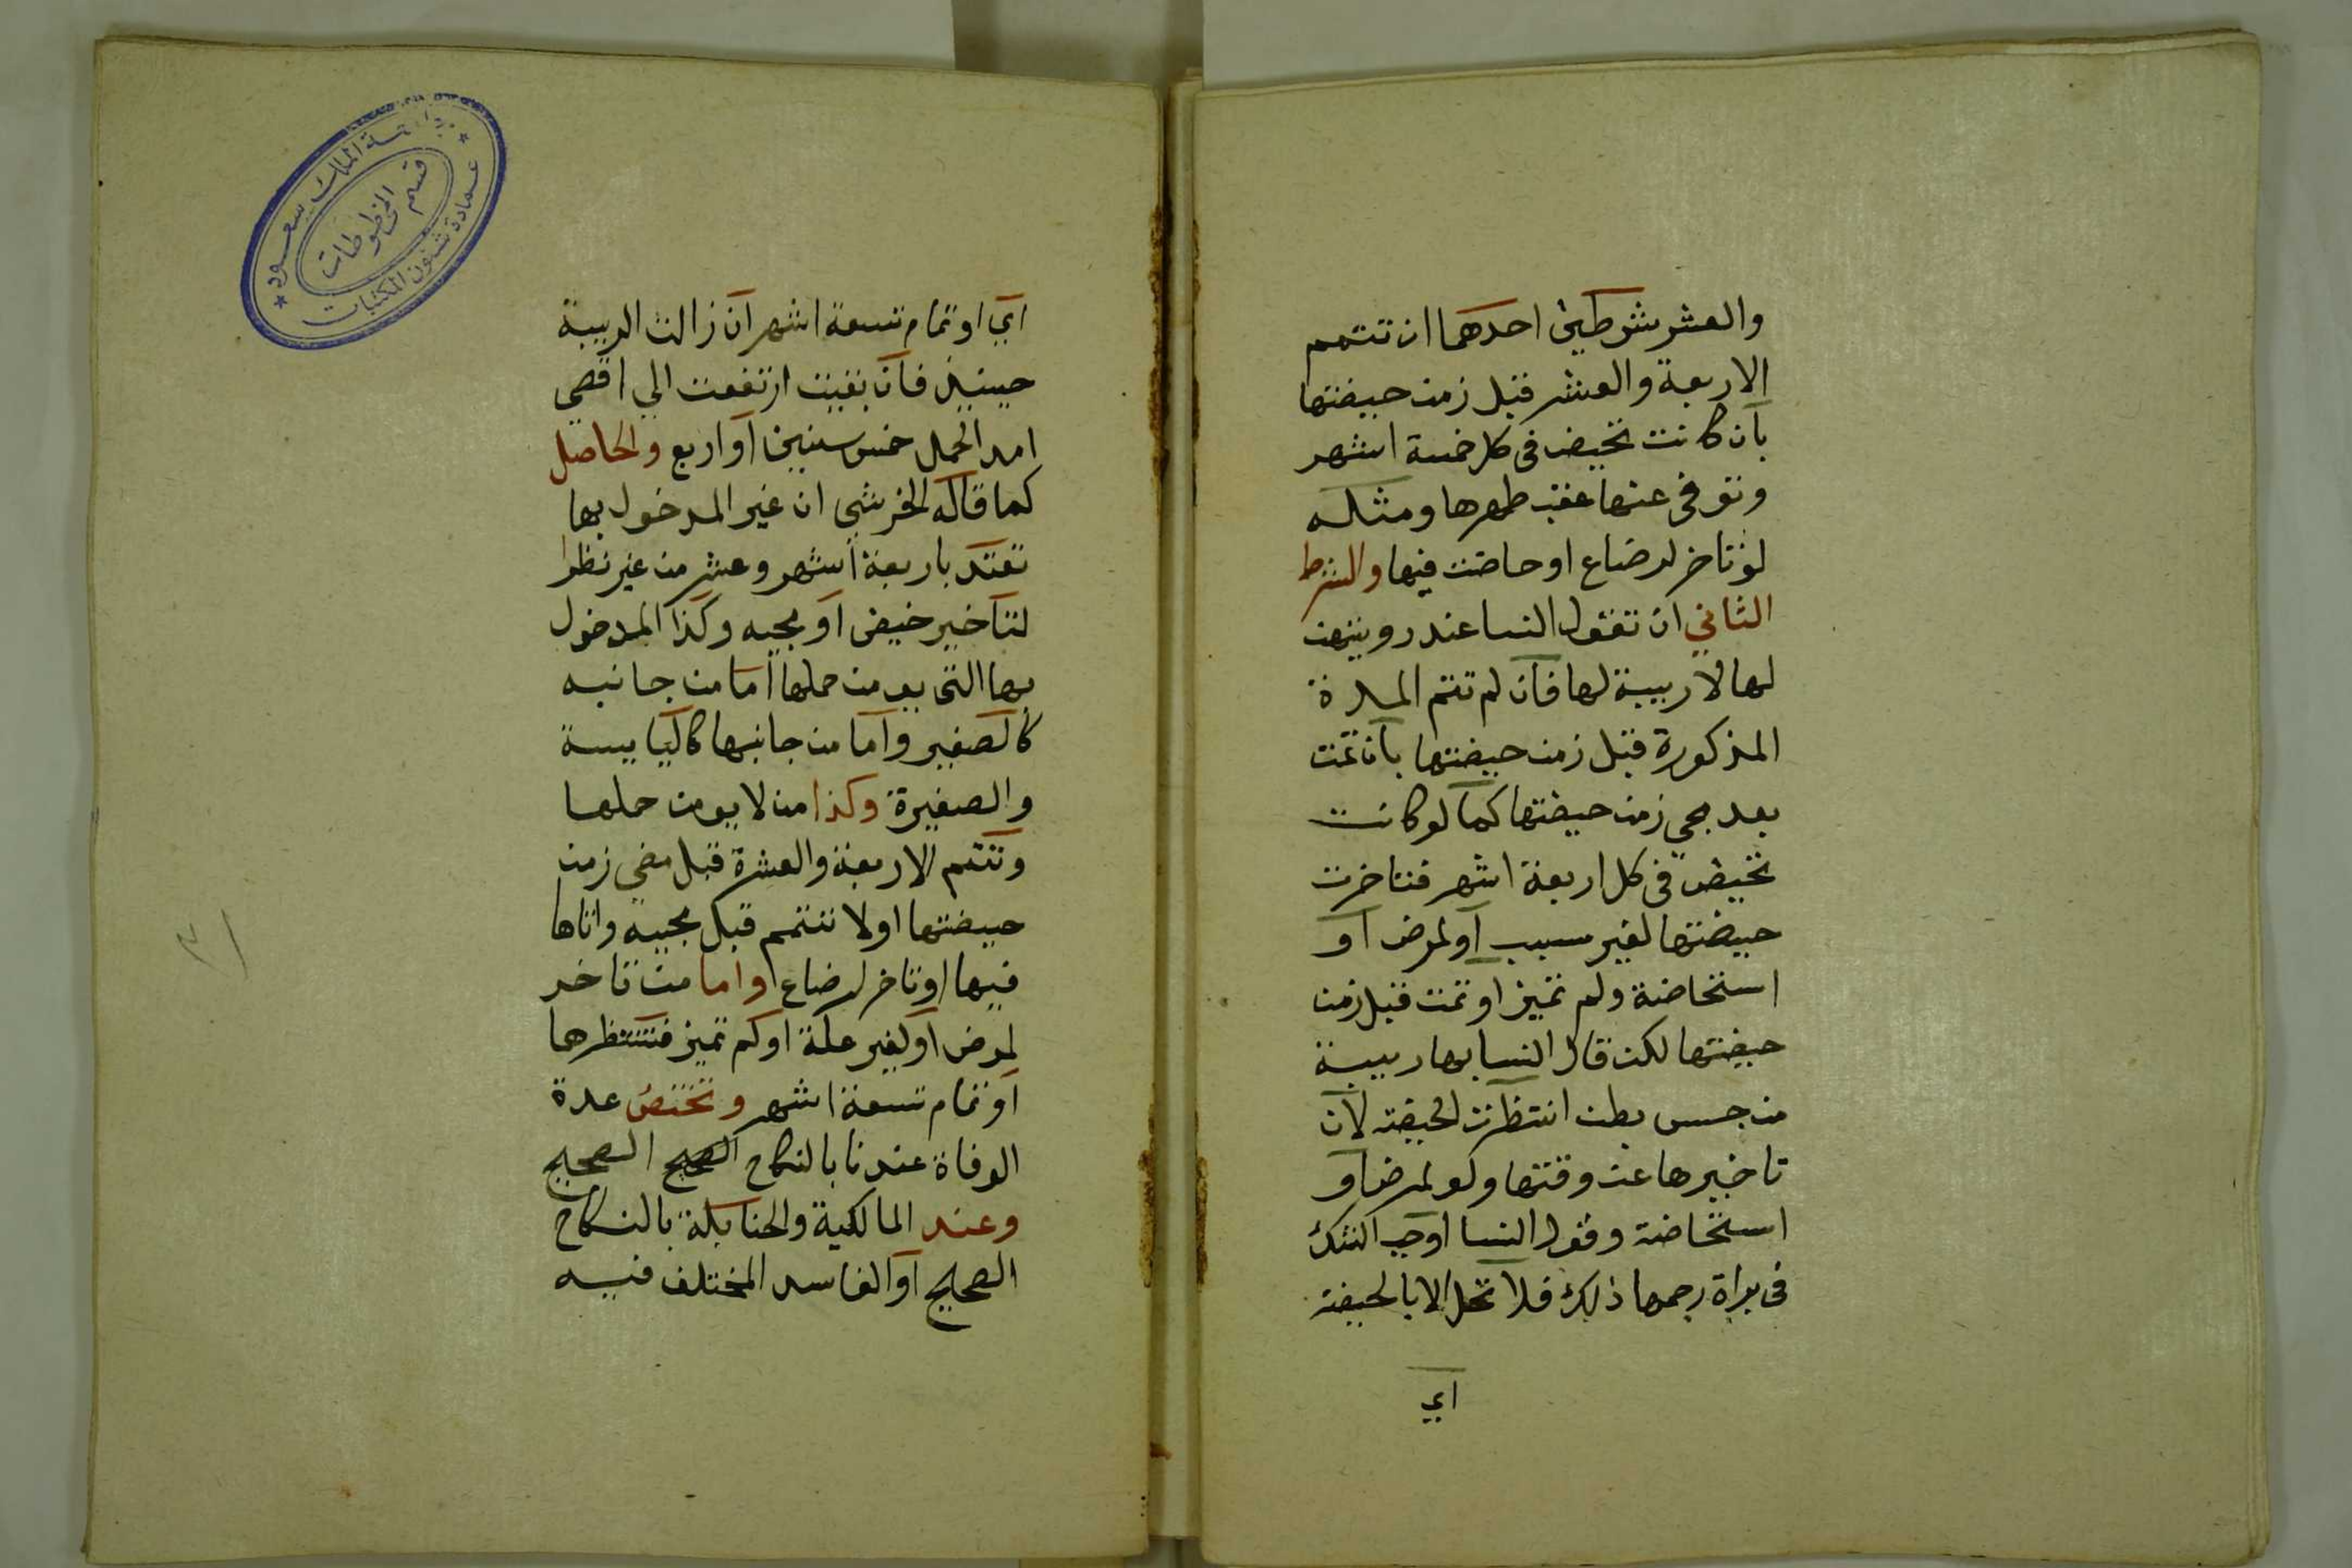 والعشر بشرطين احدهما ان تتمم
الاربعة والعشر قبل زمن حيضتها
بان كانت تحيض في كل خمسة اشهر
وتوفي عنها عقب طهرها ومثله
لو تاخر لرضاع او حاضت فيها والشرط
الثاني ان تقول النسا عند رويتهن
لها لا ريبة لها فان لم تتم المدة
المذكورة قبل زمن حيضتها بان تمت
بعد مجي زمن حيضتها كما لو كانت
تحيض في كل اربعة اشهر فتاخرت
حيضتها لغير سبب او لمرض او
استحاضة ولم تميز او تمت قبل زمن
حيضتها لكن قال النسا بها ريبة
من جس بطن انتظرت الحيضة لان
تاخيرها عن وقتها ولو لمرض او
استحاضة وقول النسا اوجب الشك
في براة رحمها ذلك فلا تحل الا بالحيضة
اي
اي او تمام تسعة اشهر ان زالت الريبة
حينيذ فان بقيت ارتفعت الي اقصي
امد الحمل خمس سنين او اربع والحاصل
كما قاله الخرشي ان غير المدخول بها
تعتد باربعة اشهر وعشر من غير نظرا
لتاخير حيض او مجيه وكذا المدخول
بها التي يومن حملها اما من جانبه
كالصغير واما من جانبها كاليايسة
والصغيرة وكذا من لا يومن حملها
وتتم الاربعة والعشرة قبل مضي زمن
حيضتها او لا تتمم قبل مجيه واتاها
فيها او تاخر لرضاع واما من تاخر
لمرض او لغير علة او لم تميز فتنتظرها
او تمام تسعة اشهر وتختص عدة
الوفاة عندنا بالنكاح الصحيح الصحيح
وعند المالكية والحنابلة بالنكاح
الصحيح او الفاسد المختلف فيه
جامعة الملك سعود
قسم المخطوطات
عمادة شئون المكتبات